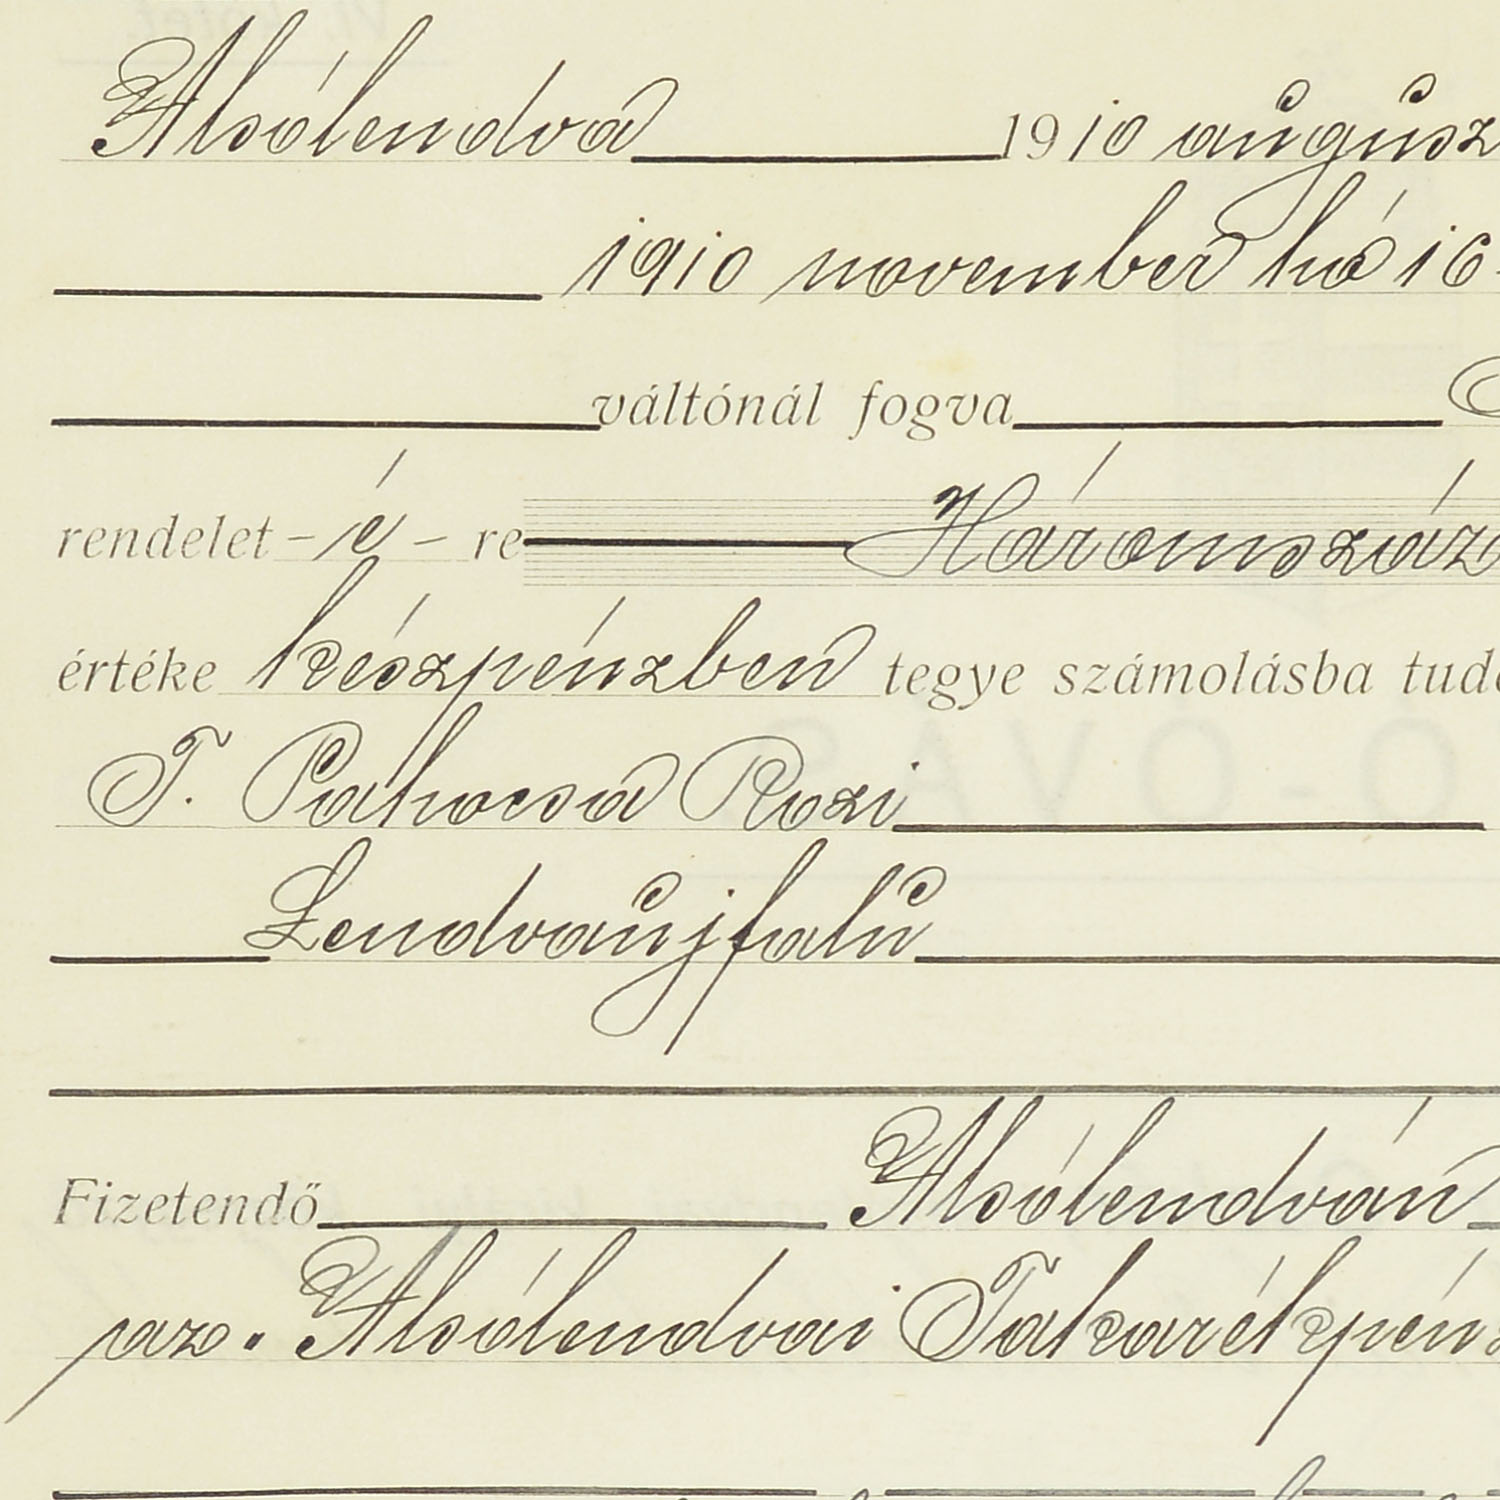 Alsólendva 1910 augusz
1910 november hó 16
váltónál fogva
rendelet - é - re Háromszáz
értéke készpénzben tegye számolásba tud
T. Pahocsa Rozi
Lendvaujfalu
Fizetendő Alsólendván
az. Alsólendvai Takarékpén